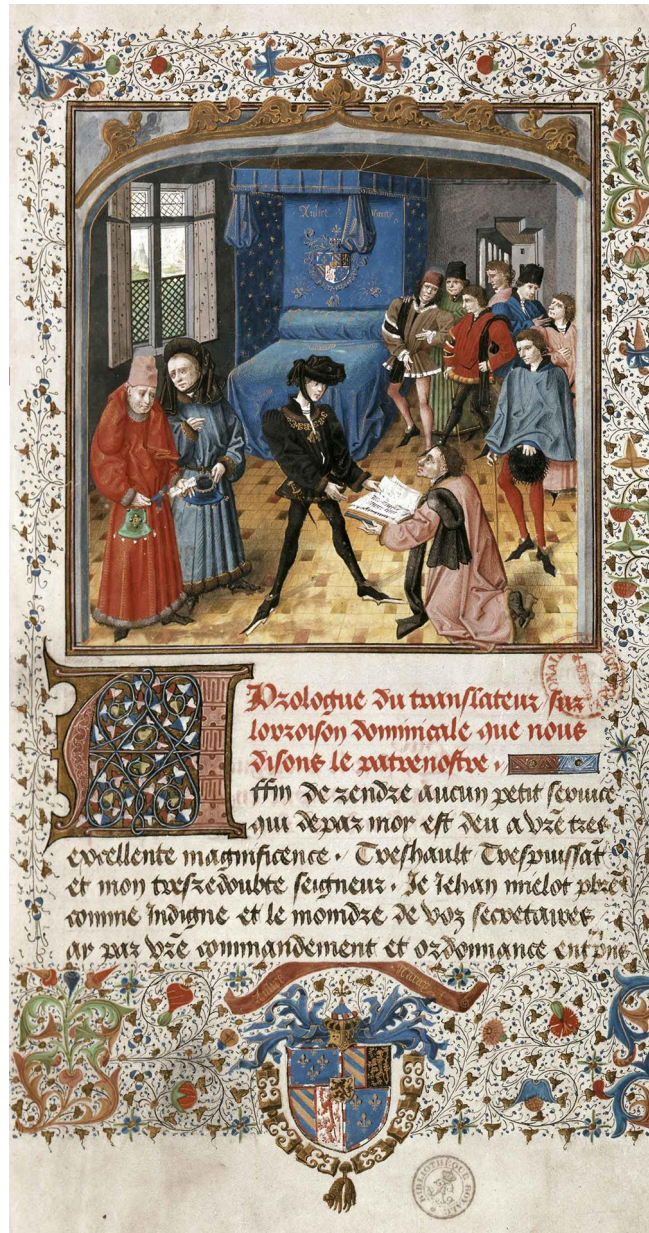 Aultre Naray
Prologue du translateur sur
lorroison dominicale que nous
disons le patrenostre .
Affin de rendre aucun petit seruice
qui de par moy est deu a vr̄e tres
excellente magnificence . Treshault Trespuissāt
et mon tresredoubte seigneur . Je Jehan mielot pb̄re
comme Indigne et le moindre de voz secretaires
ay par vr̄e commandement et ordonnance
Aultre Naray
BIBLIOTHEQUE ROYALE